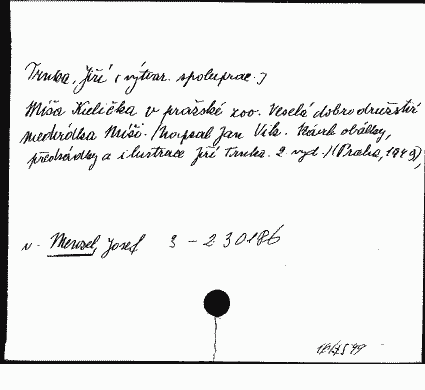 Trnka, Jiří (výtvar. spoluprac.)
Míša Kulička v pražské zoo. Veselá dobrodružství
medvídka Míši. /Napsal Jan Vik. Návrh obálky,
předsádky a ilustrace Jiří Trnka. 2. vyd./ (Praha, 1949),
v. Menzel, Josef 3 - 230186